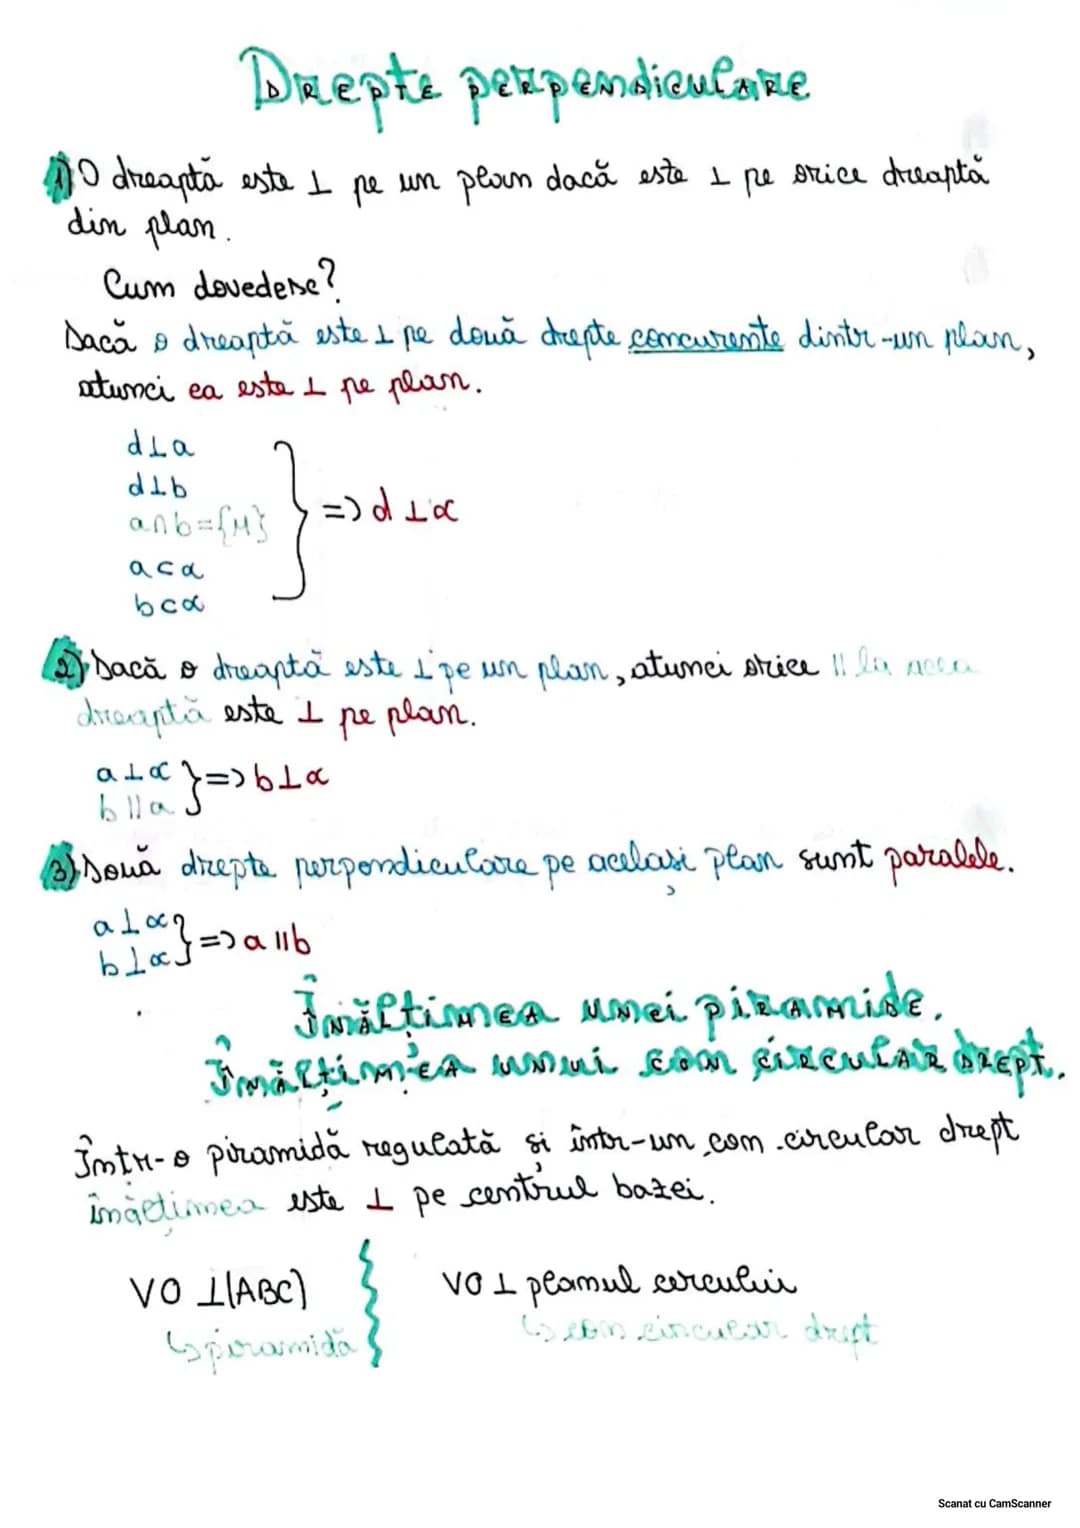 Drepte perpendiculare
1) O dreaptă este ⊥ pe un plan dacă este ⊥ pe orice dreaptă
din plan.
Cum dovedesc?
Dacă o dreaptă este ⊥ pe două drepte concurente dintr-un plan,
atunci ea este ⊥ pe plan.
d⊥a
d⊥b
a∩b={M}
a⊂α
b⊂α
} => d⊥α
2) Dacă o dreaptă este ⊥ pe un plan, atunci orice || la acea
dreaptă este ⊥ pe plan.
a⊥α
b||a
} => b⊥α
3) Două drepte perpendiculare pe același plan sunt paralele.
a⊥α
b⊥α
} => a||b
Înălțimea unei piramide.
Înălțimea unui con circular drept.
Într-o piramidă regulată și într-un con circular drept
înălțimea este ⊥ pe centrul bazei.
VO ⊥(ABC)
↳piramidă
VO ⊥ planul cercului
↳ con circular drept
Scanat cu CamScanner